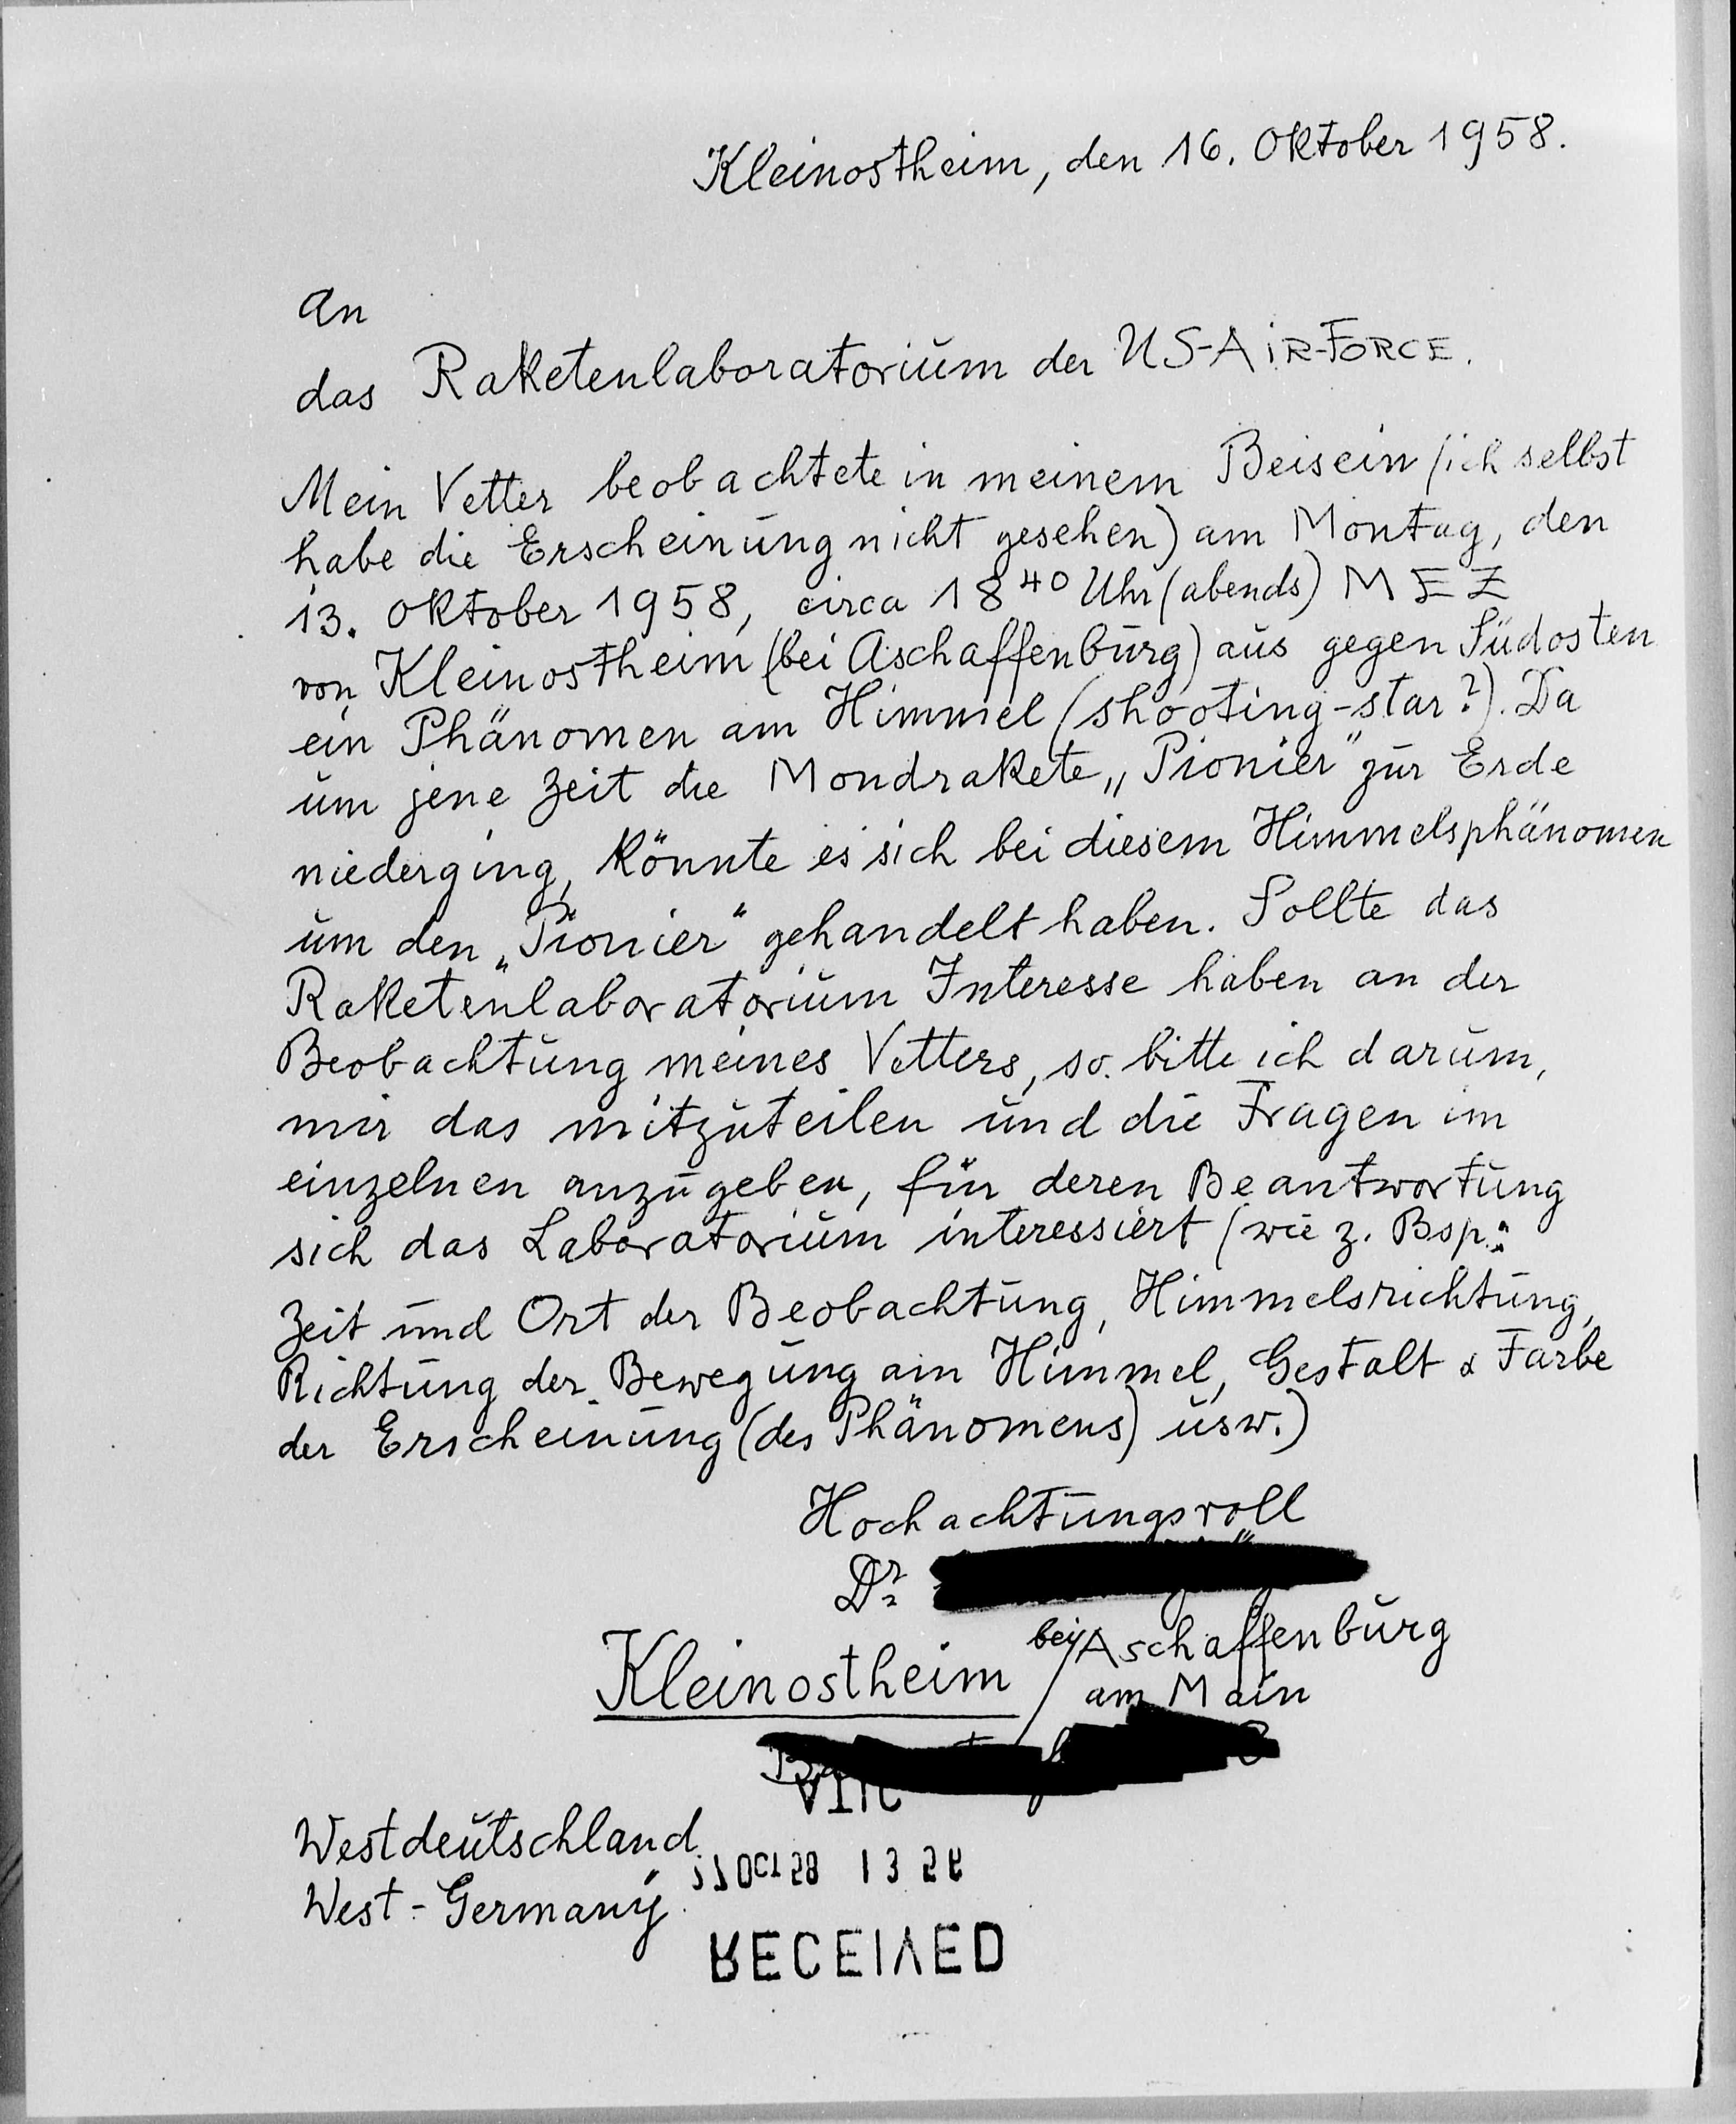 Kleinostheim, den 16. Oktober 1958.
An
das Raketenlaboratorium der US-AIR-FORCE.
Mein Vetter beobachtete in meinem Beisein (ich selbst
habe die Erscheinung nicht gesehen) am Montag, den
13. Oktober 1958, circa 18⁴⁰ Uhr (abends) MEZ
von Kleinostheim (bei Aschaffenburg) aus gegen Südosten
ein Phänomen am Himmel (shooting-star?). Da
um jene Zeit die Mondrakete „Pionier" zur Erde
niederging, könnte es sich bei diesem Himmelsphänomen
um den „Pionier" gehandelt haben. Sollte das
Raketenlaboratorium Interesse haben an der
Beobachtung meines Vetters, so bitte ich darum,
mir das mitzuteilen und die Fragen im
einzelnen anzugeben, für deren Beantwortung
sich das Laboratorium interessiert (wie z. Bsp.:
Zeit und Ort der Beobachtung, Himmelsrichtung,
Richtung der Bewegung am Himmel, Gestalt & Farbe
der Erscheinung (des Phänomens) usw.)
Hochachtungsvoll
Dr.
Kleinostheim bei/Aschaffenburg
am Main
Westdeutschland
West-Germany
OCT 58 13
RECEIVED